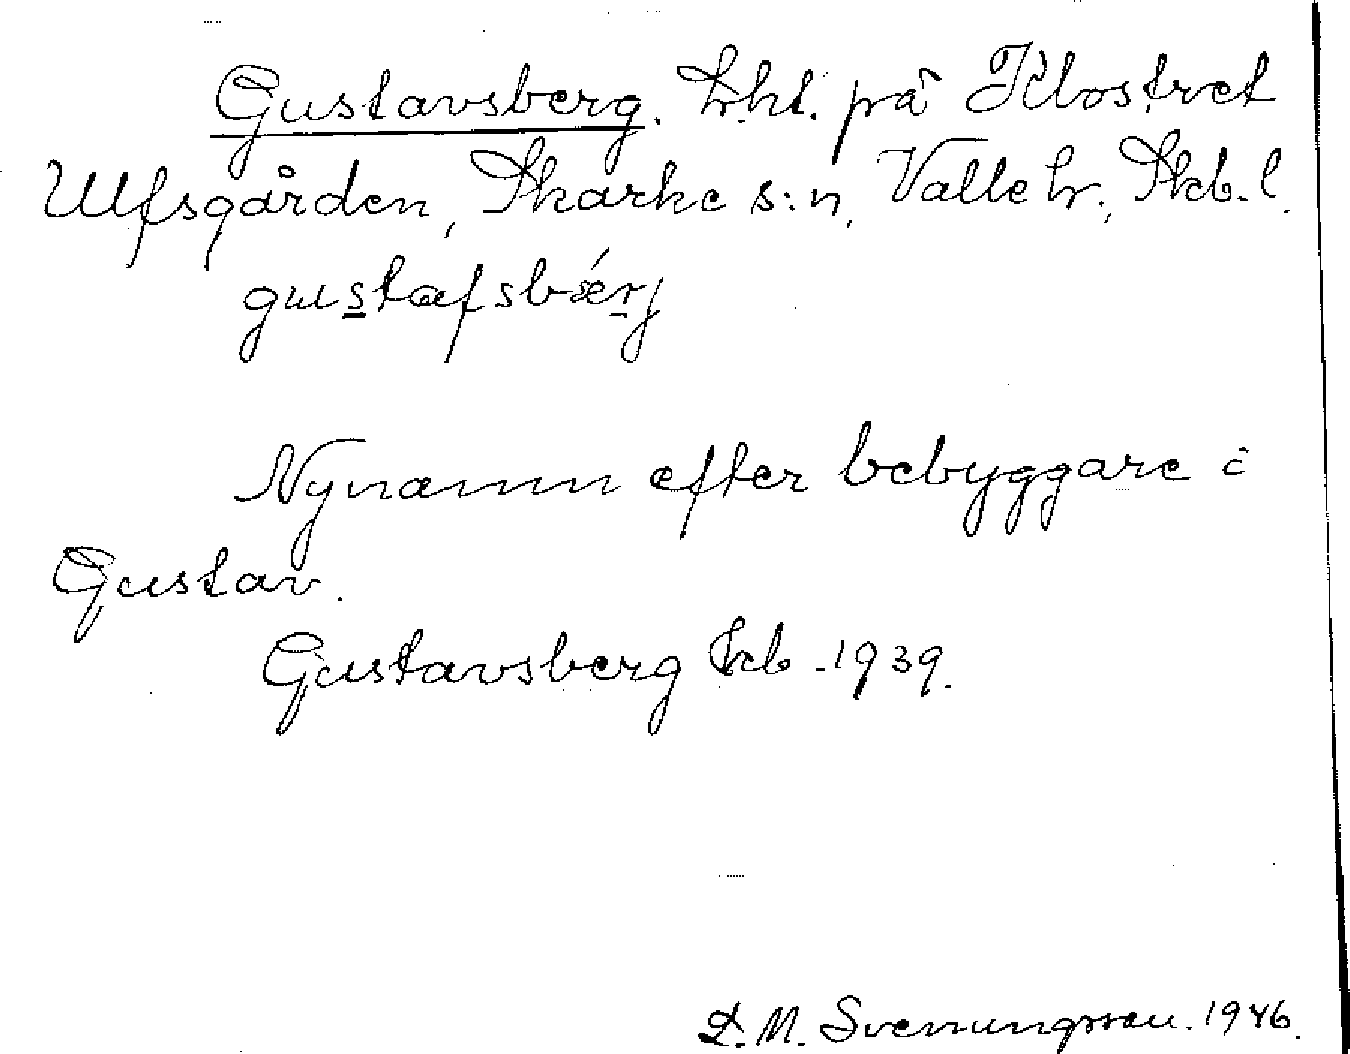 Gustavsberg. Lht. på Klostret
Ulfsgården, Skarke s:n, Valle hr., Skb. l.
gustafsbǽrj
Nynamn efter bebyggare i
Gustav.
Gustavsberg kb. 1939.
L. M. Svenungsson. 1946.